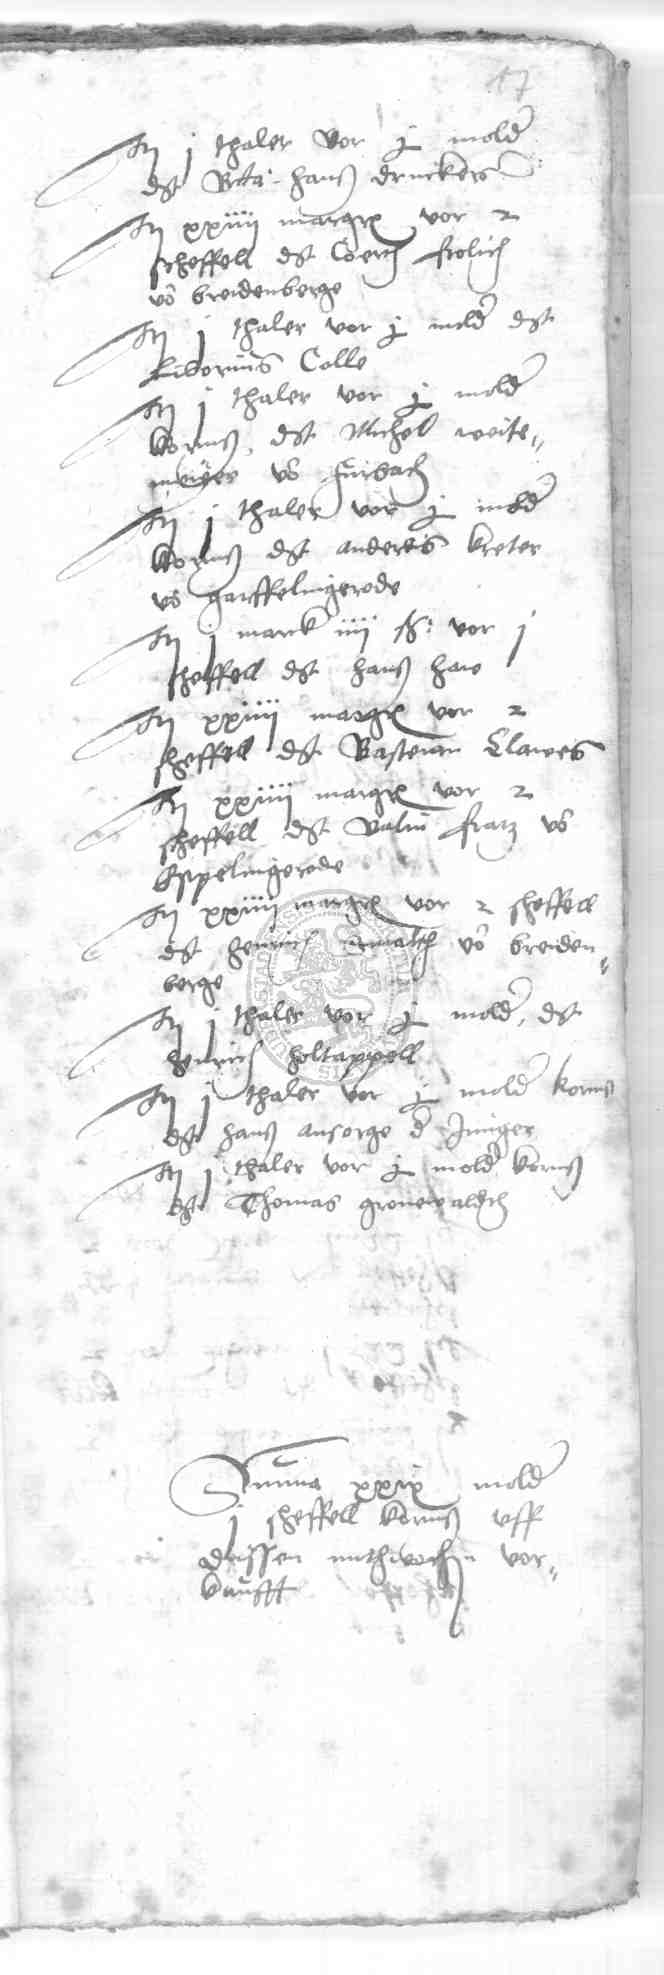 17
It j thaler vor j mold
dt Bta hanß druckers
It xxiiij margr vor 2
scheffell dt Coert frolich
vo breidenberge
It j thaler vor j mold dt
Liborius Colle
It j thaler vor j mold
korns, dt Michel weite„
meiger vo
It j thaler vor j mold
korns dt anderes kreter
vo garffelingerode
It j marck iiij ß: vor j
scheffell dt hanß hawe
It xxiiij margr vor 2
scheffell dt Bastian Clawes
It xxiiij margr vor 2
scheffell dt valtin fratz vo
Espelingerode
It xxiiij margr vor 2 scheffell
dt henrich vo breiden„
berge
It j thaler vor j mold, dt
henrich holtappell
It j thaler vor j mold korns
dt hanß ansorge d Junger
It j thaler vor j mold korns
dt Thomas gronewaldth
Summa xxix mold
j scheffell korns uff
dussen mithwochen vor„
kaufft